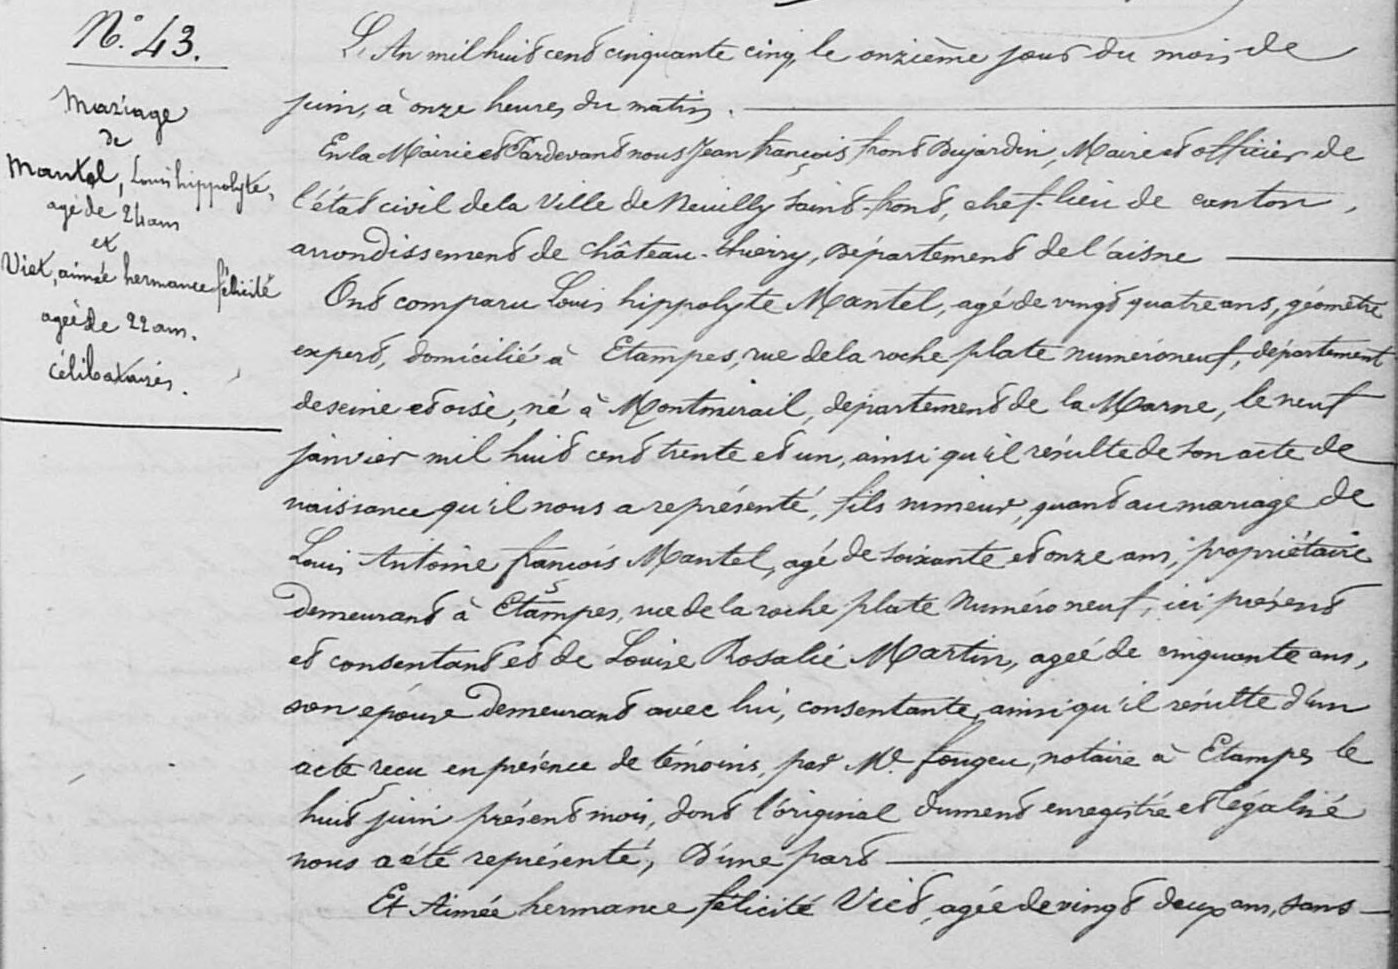 N.° 43.
Mariage
de
Mantel, Louis hippolyte,
agé de 24 ans
et
Viet, aimée hermance félicité
agée de 22 ans.
célibataires.
L'An mil huit cent cinquante cinq, le onzième jour du mois de
juin, à onze heures du matin.
En la Mairie et Pardevant nous Jean françois front Dujardin, Maire et officier de
l'état civil de la Ville de Neuilly saint-front, chef-lieu de canton,
arrondissement de château-thierry, Département de l'aisne
Ont comparu Louis hippolyte Mantel, agé de vingt quatre ans, géomètre
expert, domicilié à Etampes, rue de la roche plate numéro neuf, département
de seine et oise, né à Montmirail, département de la Marne, le neuf
janvier mil huit cent trente et un, ainsi qu'il résulte de son acte de
naissance qu'il nous a représenté, fils mineur, quant au mariage de
Louis Antoine françois Mantel, agé de soixante et onze ans, propriétaire
demeurant à Etampes, rue de la roche plate Numéro neuf, ici présent
et consentant et de Louise Rosalie Martin, agée de cinquante ans,
son épouse demeurant avec lui, consentante, ainsi qu'il résulte d'un
acte recu en présence de témoins, par Me. fougeu, notaire à Etampes le
huit juin présent mois, dont l'original dument enregistré et légalisé
nous a été représenté, D'une part
Et Aimée hermance félicité Viet, agée de vingt deux ans, sans